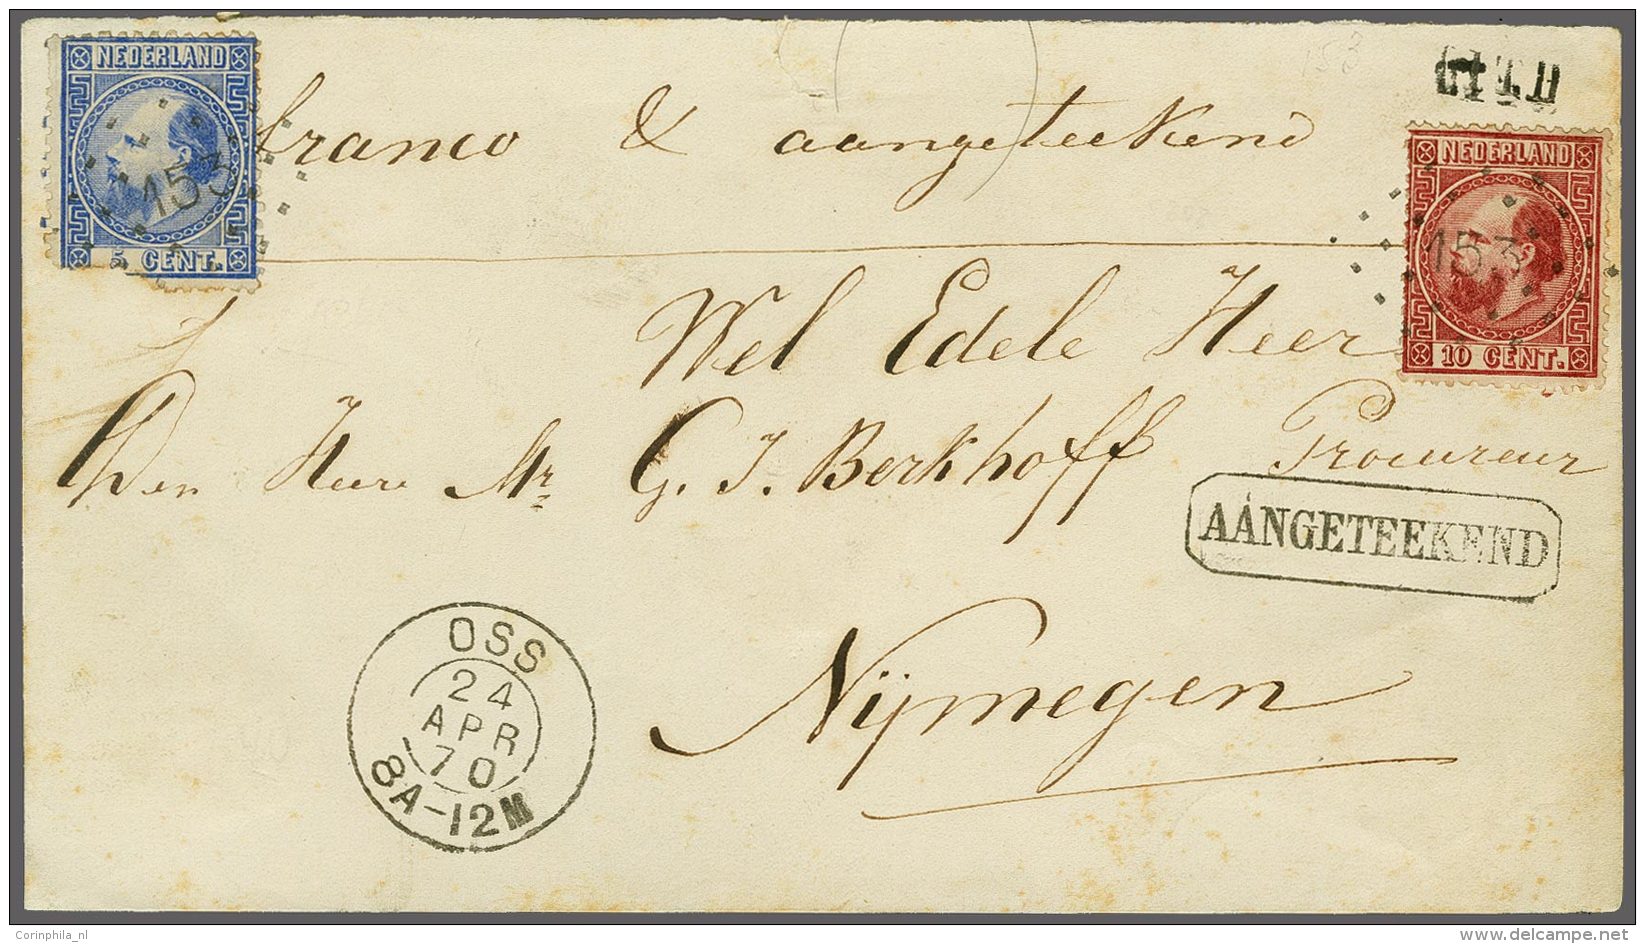 NEDERLAND
5 CENT.
153
franco & aangeteekend
NEDERLAND
10 CENT.
153
Wel Edele Heer
Den Heere Mr G. J. Berkhoff Procureur
AANGETEEKEND
Nijmegen
OSS
24
APR
70
8A-12M
Corinphila_nl
delcampe.net